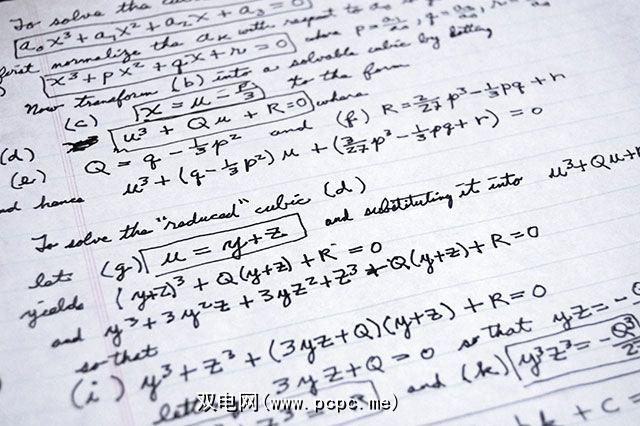 To solve the
a₀x³ + a₁x² + a₂x + a₃ = 0
first normalize the aₖ with respect to
x³ + px² + qx + r = 0 where p = a₁/a₀,
Now transform (b) into a solvable cubic by letting
(c) x = u - p/3 to the form
(d) u³ + Qu + R = 0 where
(e) Q = q - ⅓p² and (f) R = 2/27 p³ - ⅓pq + r
and hence u³ + (q - ⅓p²)u + (2/27 p³ - ⅓pq + r) = 0
To solve the "reduced" cubic (d)
let (g) u = y + z and substituting it into u³ + Qu +
yields (y+z)³ + Q(y+z) + R = 0
and y³ + 3y²z + 3yz² + z³ + Q(y+z) + R = 0
so that
(i) y³ + z³ + (3yz + Q)(y+z) + R = 0
3yz + Q = 0 so that yz = -
and (k) y³z³ = -Q³/
双电网(www.pcpc.me)